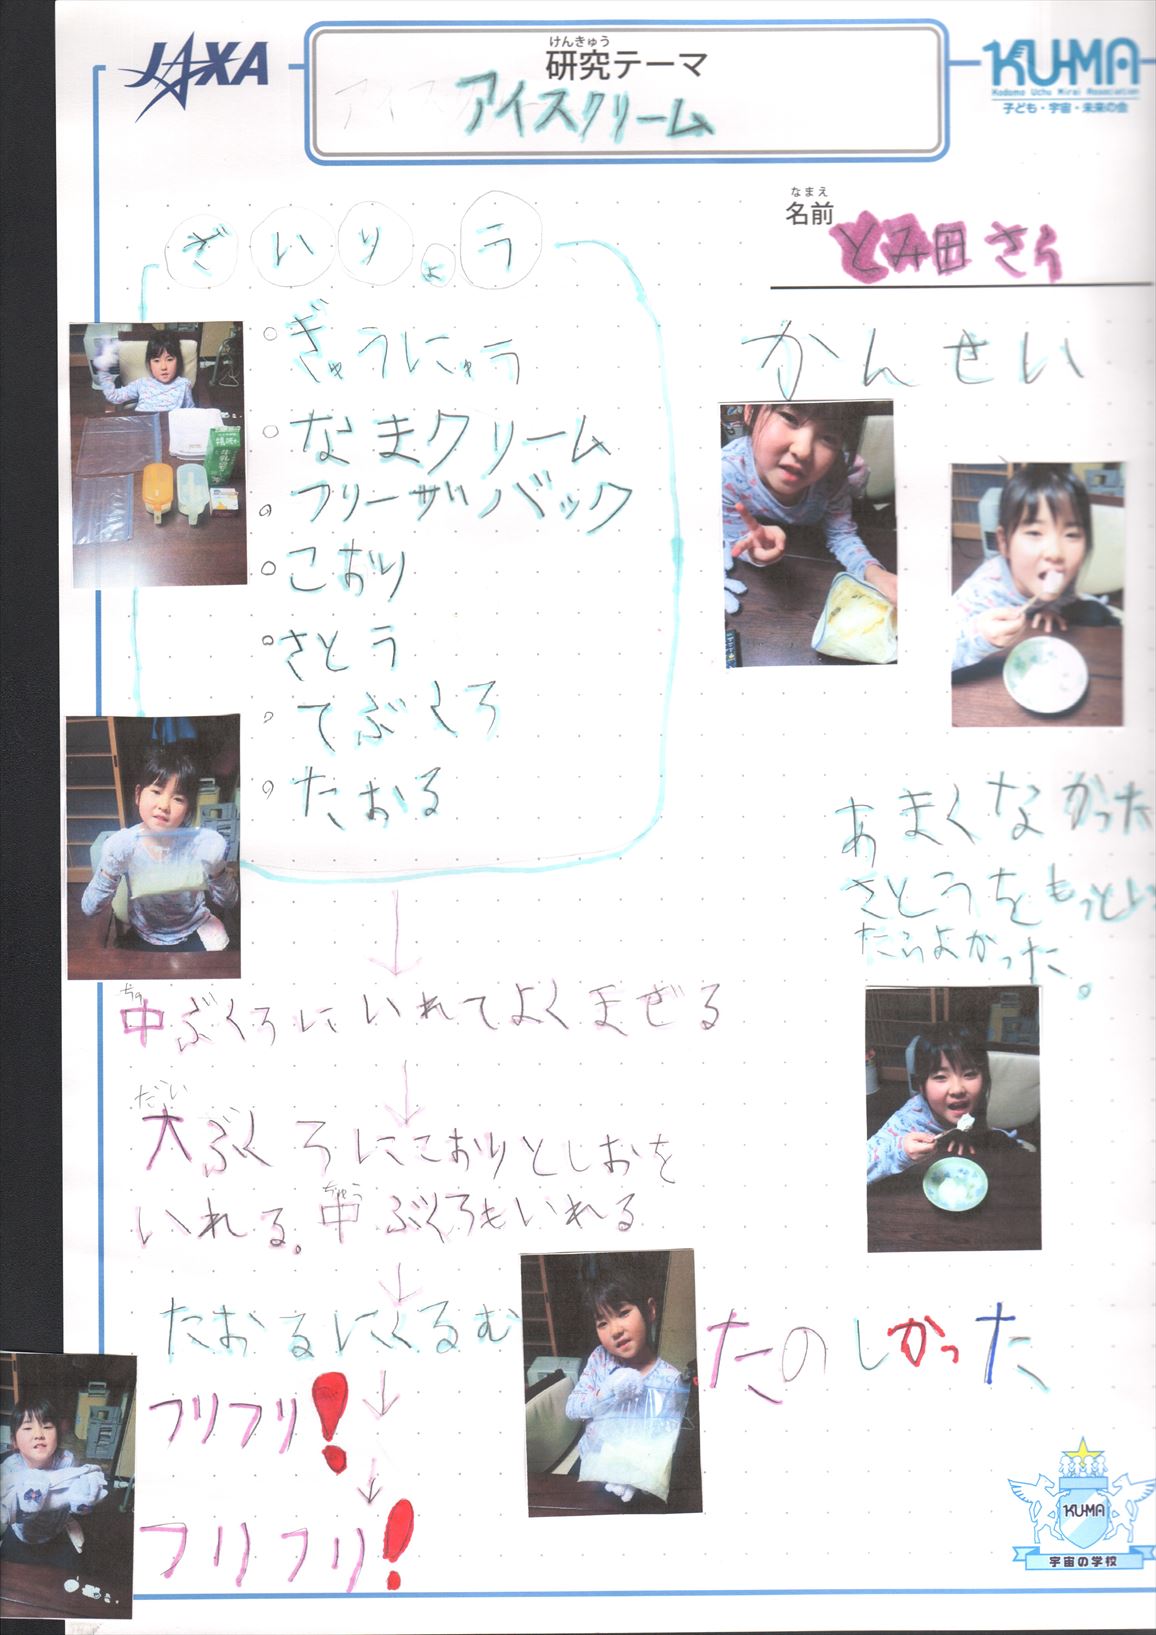 JAXA
けんきゅう
研究テーマ
アイスクリーム
KU-MA
Kodomo Uchu Mirai Association
子ども・宇宙・未来の会
なまえ
名前
とみ田さら
ざいりょう
ぎゅうにゅう
なまクリーム
フリーザバック
こおり
さとう
てぶくろ
たおる
かんせい
あまくなかった
さとうをもっとい
たらよかった。
中ぶくろにいれてよくまぜる
だい
大ぶくろにこおりとしおを
いれる。中ぶくろもいれる
ちゅう
たおるにくるむ
フリフリ!
フリフリ!
たのしかった
KU-MA
宇宙の学校